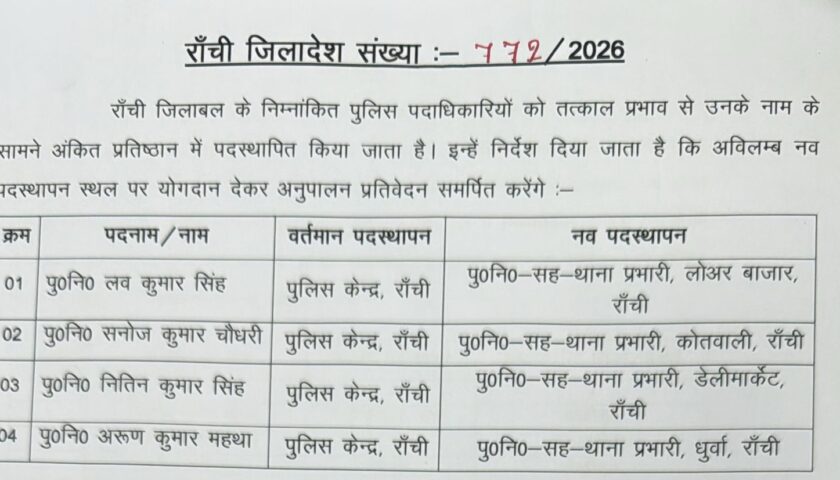 राँची जिलादेश संख्या :– 772/2026
राँची जिलाबल के निम्नांकित पुलिस पदाधिकारियों को तत्काल प्रभाव से उनके नाम के
सामने अंकित प्रतिष्ठान में पदस्थापित किया जाता है। इन्हें निर्देश दिया जाता है कि अविलम्ब नव
पदस्थापन स्थल पर योगदान देकर अनुपालन प्रतिवेदन समर्पित करेंगे :–
क्रम पदनाम/नाम वर्तमान पदस्थापन नव पदस्थापन
01 पु0नि0 लव कुमार सिंह पुलिस केन्द्र, राँची पु0नि0–सह–थाना प्रभारी, लोअर बाजार,
राँची
02 पु0नि0 सनोज कुमार चौधरी पुलिस केन्द्र, राँची पु0नि0–सह–थाना प्रभारी, कोतवाली, राँची
03 पु0नि0 नितिन कुमार सिंह पुलिस केन्द्र, राँची पु0नि0–सह–थाना प्रभारी, डेलीमार्केट,
राँची
04 पु0नि0 अरूण कुमार महथा पुलिस केन्द्र, राँची पु0नि0–सह–थाना प्रभारी, धुर्वा, राँची